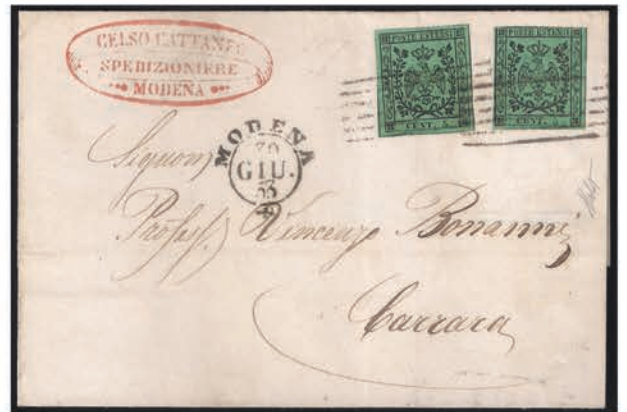 CELSO CATTANI
SPEDIZIONIERE
MODENA
POSTE ESTENSI
CENT. 5.
POSTE ESTENSI
CENT. 5.
MODENA
30
GIU.
53
Signor
Profess. Vincenzo Bonanni
Carrara